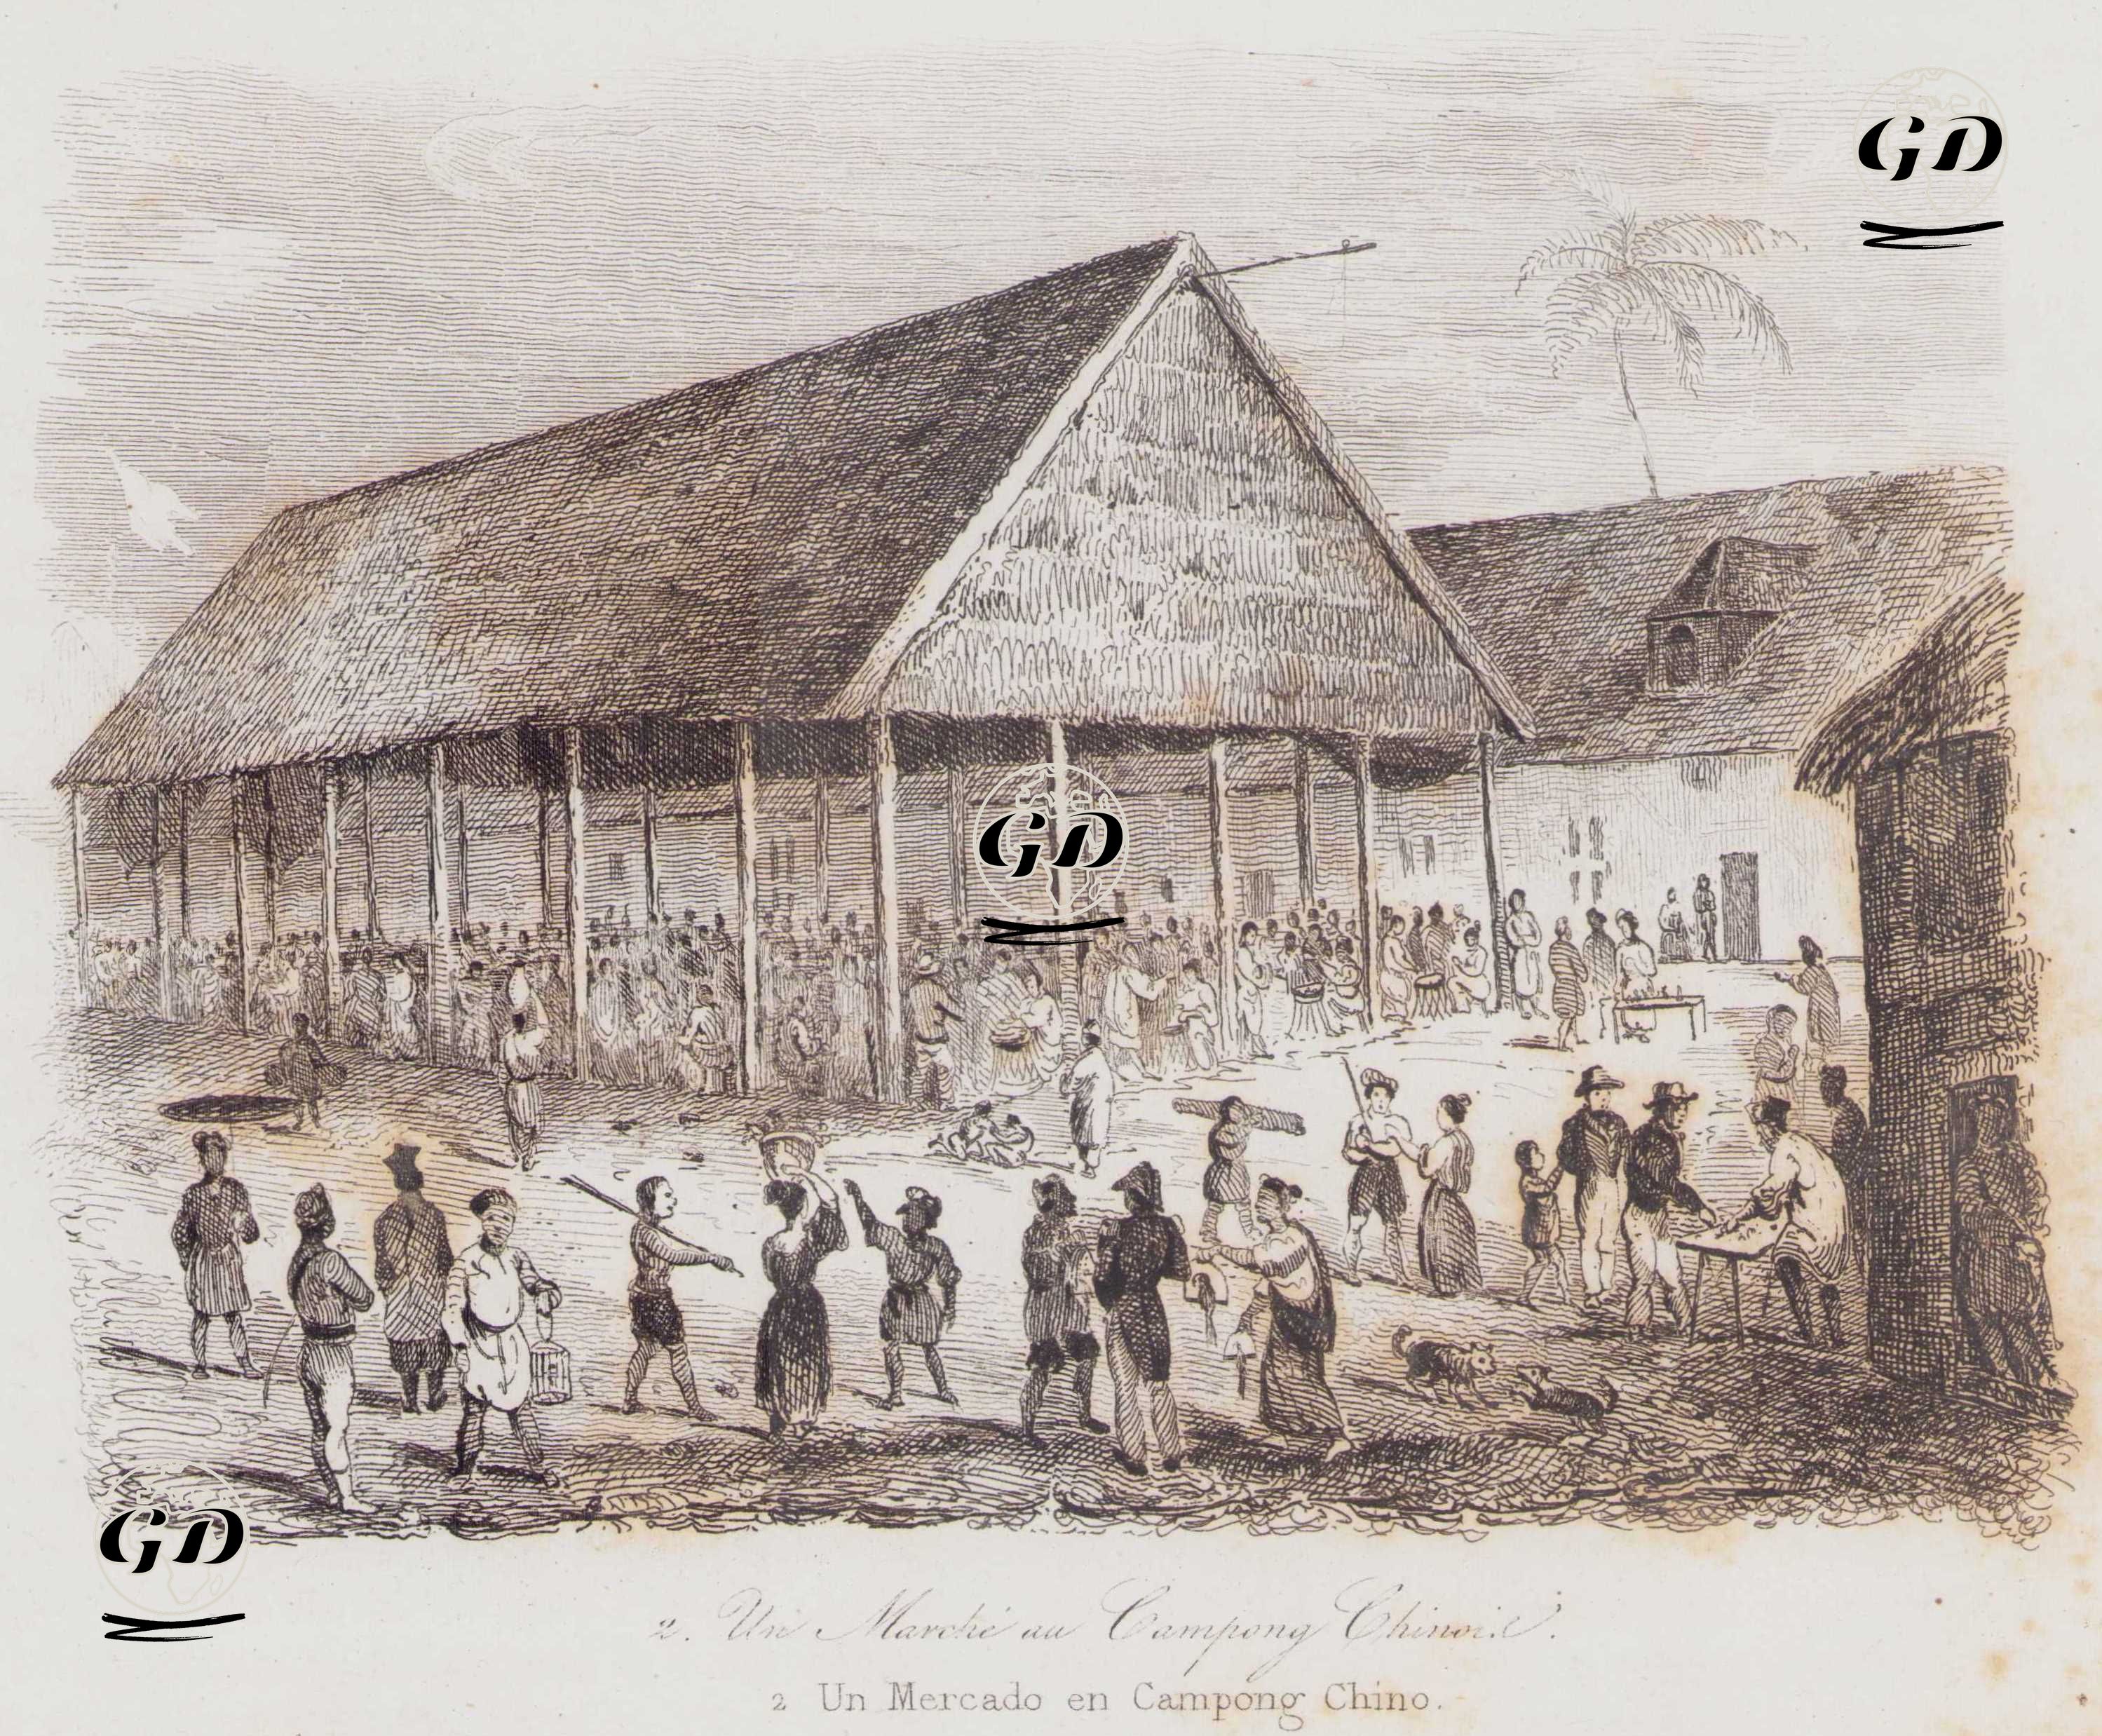 GD
GD
GD
2. Un Marché au Campong Chinois.
2 Un Mercado en Campong Chino.